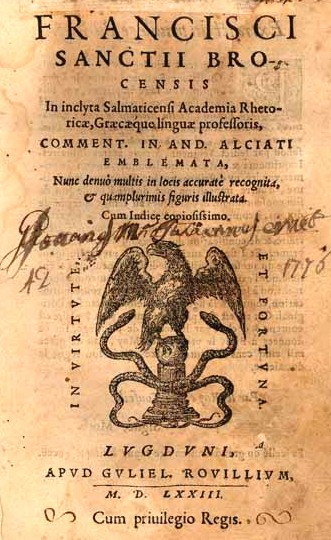 FRANCISCI
SANCTII BRO-
CENSIS
In inclyta Salmaticensi Academia Rheto-
ricæ, Græcæque linguæ professoris,
COMMENT. IN AND. ALCIATI
EMBLEMATA,
Nunc denuò multis in locis accuratè recognita,
& quamplurimis figuris illustrata.
Cum Indice copiosissimo.
42
1773
IN VIRTUTE,
ET FORTUNA.
LVGDVNI,
APVD GVLIEL. ROVILLIVM,
M. D. LXXIII.
Cum priuilegio Regis.